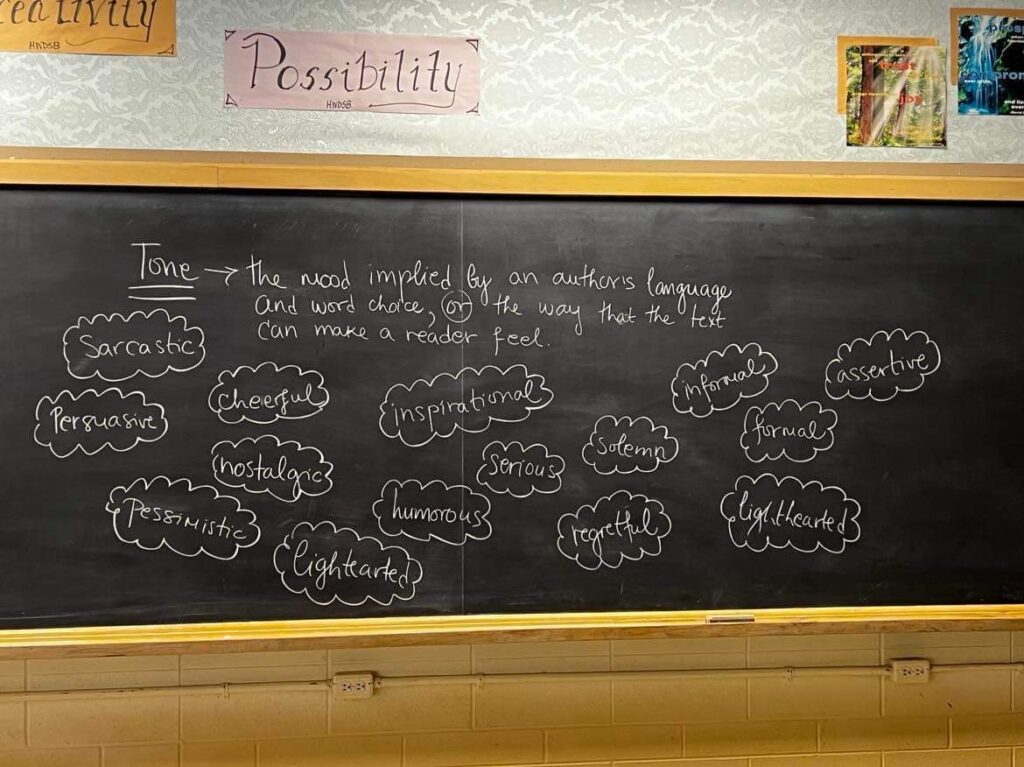 reativity
HNDSB
Possibility
HNDSB
trust
joy
Tone → the mood implied by an author's language
and word choice, or the way that the text
can make a reader feel.
Sarcastic
Persuasive
cheerful
inspirational
informal
assertive
nostalgic
serious
solemn
formal
Pessimistic
humorous
regretful
lighthearted
lightearted